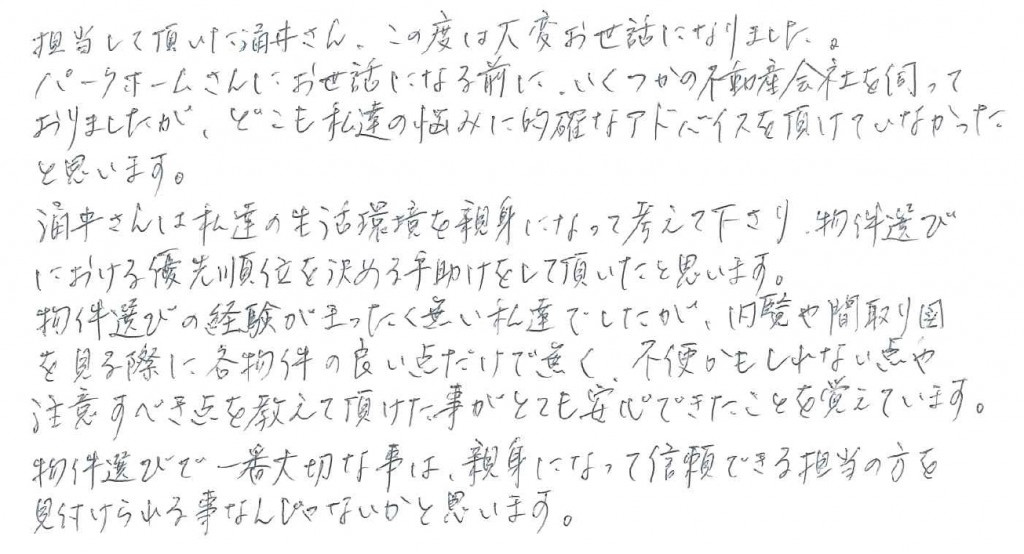 担当して頂いた涌井さん、この度は大変お世話になりました。
パークホームさんにお世話になる前に、いくつかの不動産会社を伺って
おりましたが、どこも私達の悩みに的確なアドバイスを頂けていなかった
と思います。
涌井さんは私達の生活環境を親身になって考えて下さり、物件選び
における優先順位を決める手助けをして頂いたと思います。
物件選びの経験がまったく無い私達でしたが、内覧や間取り図
を見る際に各物件の良い点だけで無く、不便かもしれない点や
注意すべき点を教えて頂けた事がとても安心できたことを覚えています。
物件選びで一番大切な事は、親身になって信頼できる担当の方を
見付けられる事なんじゃないかと思います。